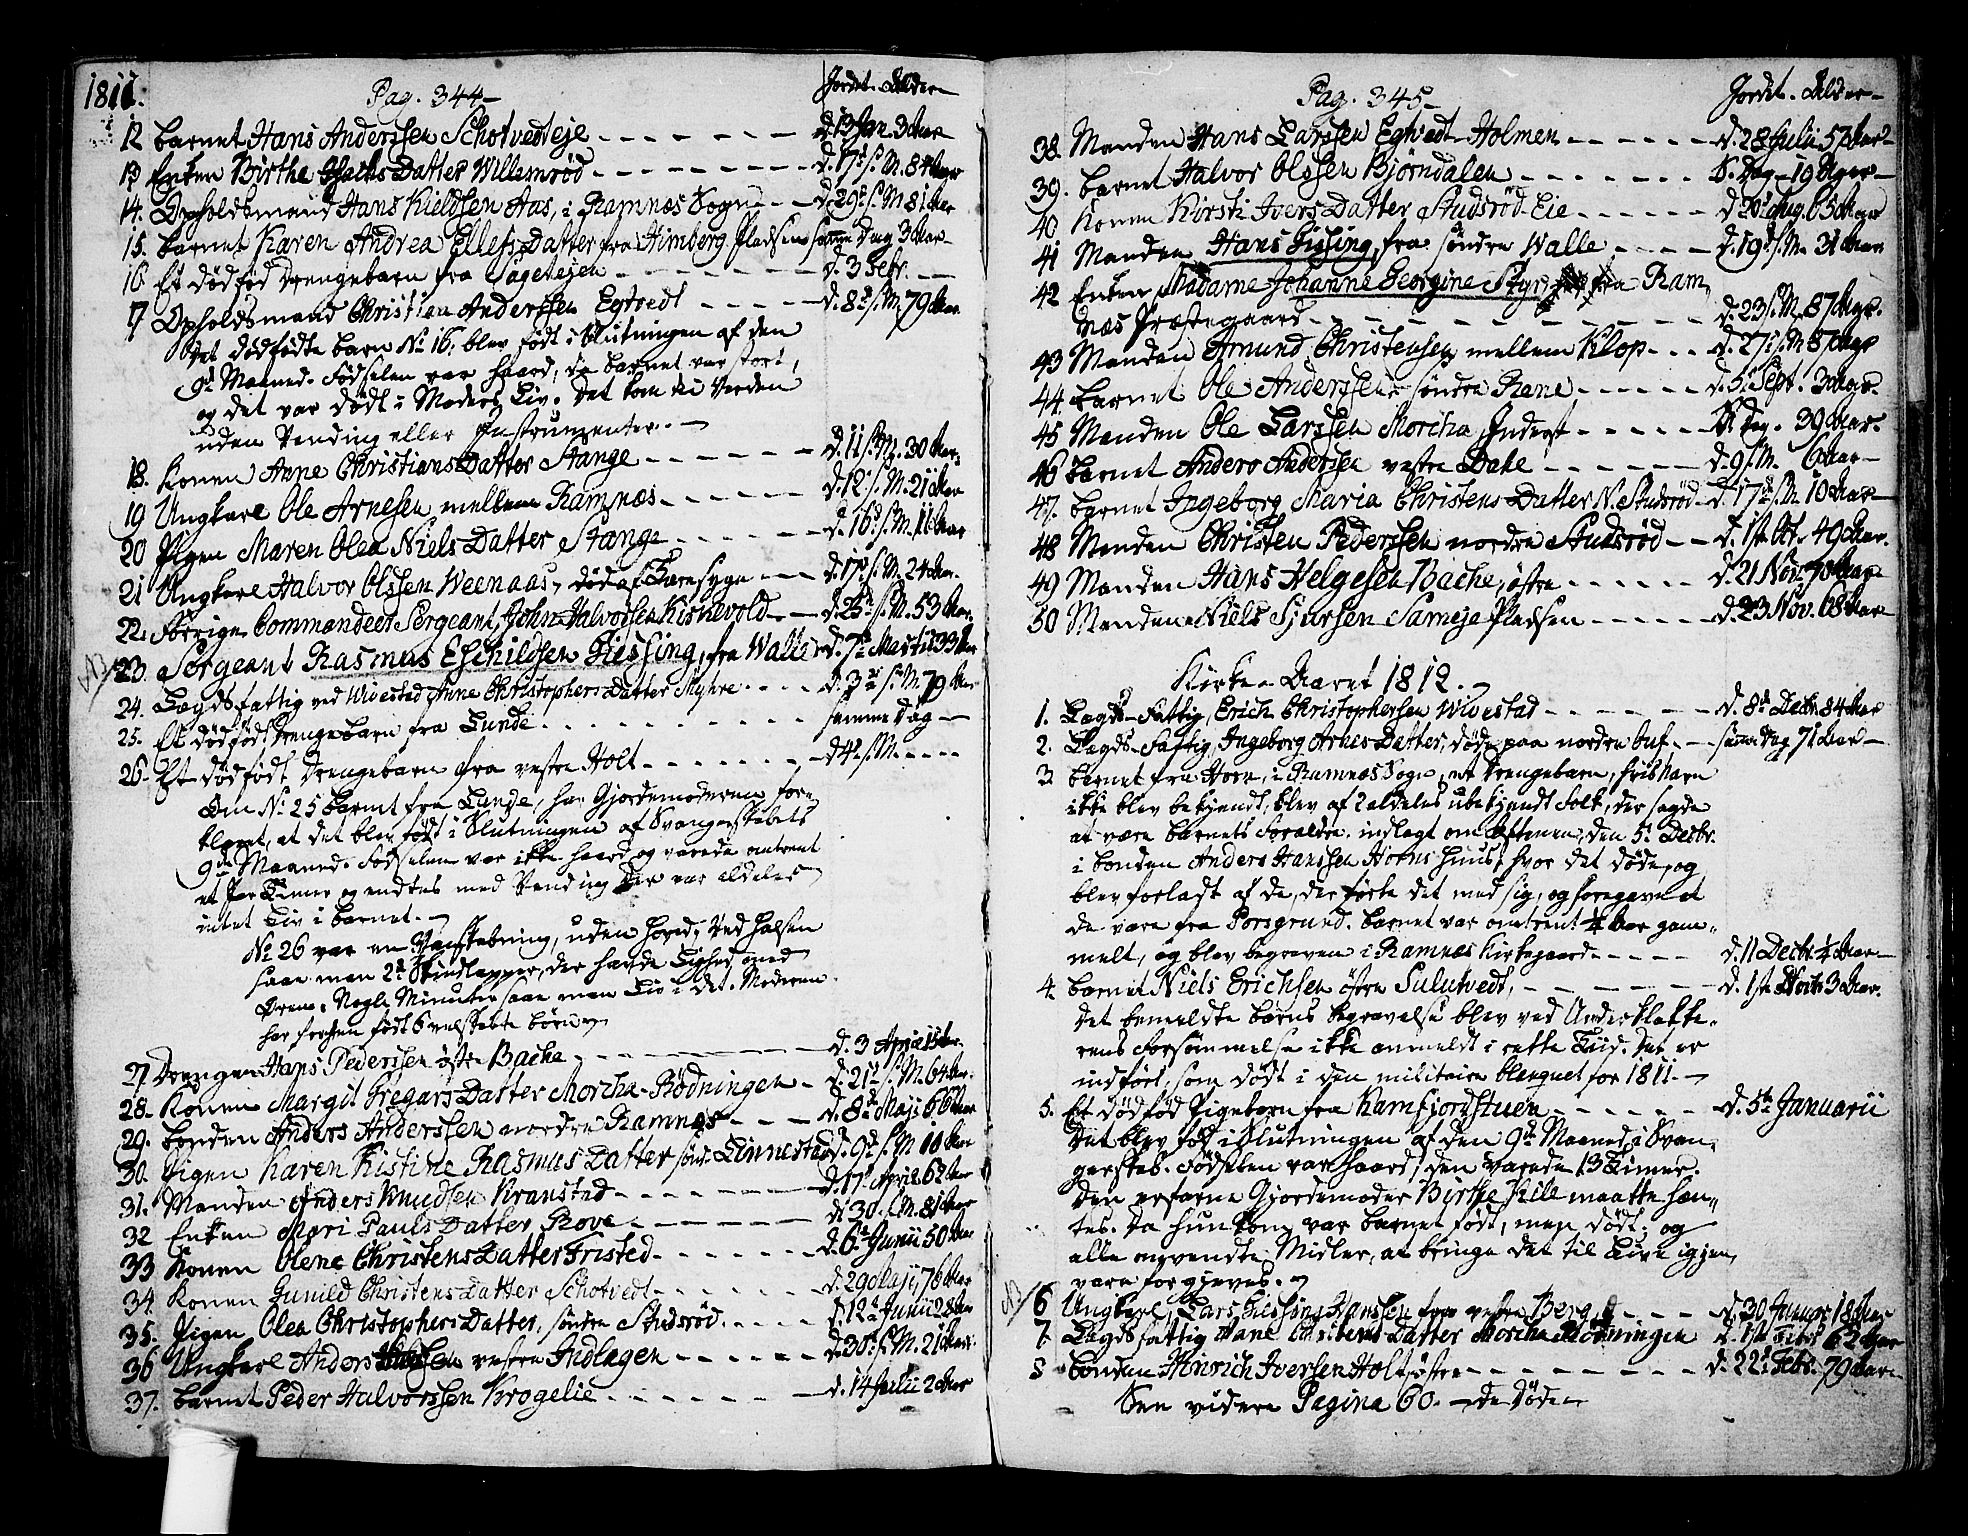 1811.
Pag. 344 Jordet. Alder
12 Barnet Hans Anderssen Schotvedteje d. 13 Jan. 3 Aar
13 Enken Birthe Datter Willamrød d. 17d s. M. 84 Aar
14. Opholdsmand Hans Kieldsen Aas, i Ramnæs Sogn d. 29d s. M. 81 Aar
15. Barnet Karen Andrea Ellefs Datter fra Himberg Pladsen samme Dag 3 Aar
16 Et dødfød Drengebarn fra Sagetejen d. 3 Febr.
17 Opholdsmand Christian Anderssen Egtvedt d. 8d s. M. 79 Aar
Det dødfødte Barn No 16. blev født i Slutningen af den
9d Maaned. Fødselen var haard, da Barnet var stort,
og det var dødt i Moders Liv. Det kom til Verden
uden Vending eller Instrumenter.
18. Konen Anne Christians Datter Stange d. 11 s. M. 30 Aar
19 Ungkarl Ole Arnesen mellem Ramnæs d. 12 s. M. 21 Aar
20 Pigen Maren Olea Niels Datter Stange d. 16d s. M. 11 Aar
21 Ungkarl Halvor Olssen Weenaas, død af d. 17d s. M. 24 Aar
22. Forrige Commandeer Sergeant, John Halvorsen Kirkevold d. 25 s. M. 53 Aar
NB 23. Sergeant Rasmus Eschildsen Giessing, fra Walle d. 7d Martii 33 Aar
24. Lægdsfattig ved Wivestad Anne Christophers Datter Myhre d. 3 s. M. 79 Aar
25. Et dødfødt Drengebarn fra Lunde samme Dag
26. Et dødfødt Drengebarn fra vestre Holt d. 4d s. M.
Om No. 25 Barnet fra Lunde, har Gjordemoderen for-
klaret, at det blev født i Slutningen af Svangerskabets
9de Maaned. Fødselen var ikke haard og varede omtrent
et Par Timer og endtes med Vending Der var aldeles
intet Liv i Barnet.
No 26 var en Vanskabning, uden Hoved; Ved Halsen
saae man 2de Skindlapper, der havde Lighed med
Øren. Nogle Minuter saae man Liv i det. Moderen
har forhen født 6 velskabte Børn
27 Drengen Hans Pederssen østre Bache d. 3 April 15 Aar
28. Konen Margit Gregars Datter Morcha-Rødningen d. 21d s. M. 64 Aar
29. Bonden Anders Anderssen nordre Ramnæs d. 8d Maji 66 Aar
30. Pigen Karen Kistine Rasmus Datter sønd. Linnestad d. 9d s. M. 10 Aar
31. Manden Anders Knudsen Kranstad d. 17 April 62 Aar
32 Enken Mari Pauls Datter Rove d. 30 s. M. 81 Aar
33 Konen Olene Christens Datter Fristed d. 6d Junii 50 Aar
34. Konen Gunild Christens Datter Schotvedt d. 29 Maji, 76 Aar
35. Pigen Olea Christophers Datter, søndre Studsrød d. 12d Junii 28 Aar
36 Ungkarl Anders vestre Indlagen d. 30d s. M. 21 Aar
37. Barnet Peder Halvorssen Krogelie d. 14 Julii 2 Aar
Pag. 345 Jordet. Alder
38. Manden Hans Larssen Egtvedt-Holmen d. 28 Julii 57 Aar
39. Barnet Halvor Olssen Bjørndalen S. Dag 10 Uger
40 Konen Kirsti Ivers Datter Studsrød-Eie d. 20d Aug. 65 Aar
41 Manden Hans Gissing, fra søndre Walle d. 19d s. M. 31 Aar
42 Enken Madame Johanne Georgine fra Ram-
næs Præstegaard d. 23 s. M. 87 Aar.
43 Manden Amund Christensen mellem Klop d. 27d s. M. 87 Aar
44. Barnet Ole Anderssen søndre Rane d. Sept. 3 Aar.
45 Manden Ole Larssen Morcha, Inderst S. Dag. 39 Aar.
46 Barnet Anders Andersen vestre Dale d. 9 s. M. 6 Aar
47. Barnet Ingeborg Maria Christens Datter N. Studsrød d. 17d s. M. 10 Aar
48 Manden Christen Pederssen nordre Studsrød d. 1ste Obr. 49 Aar.
49 Manden Hans Helgesen Bache, østre d. 21 Nov. 70 Aar
50 Manden Niels Sjursen Sameje-Pladsen d. 23 Nov. 68 Aar
Kirke-Aaret 1812.
1. Lægds-Fattig, Erich Christophersen Wivestad d. 8d Decbr 84 Aar
2. Lægds-Fattig, Ingeborg Arnes Datter, døde paa nordre Buf. samme Dag 71 Aar
3. Barnet fra Horn, i Ramnæs Sogn, et Drengebarn, hvis Navn
ikke blev bekjendt, blev af 2 aldeles ubekjendt Folk, der sagde
at være Barnets Forældre, indlagt om Aftenen, den 5d Decbr.
i Bonden Anders Hanssen Horns Huus, hvor det døde, og
blev forladt af de, der førte det med sig, og foregave at
de vare fra Porsgrund. Barnet var omtrent ¼ Aar gam-
melt, og blev begraven i Ramnæs Kirkegaard d. 11 Decbr. ¼ Aar
4. Barnet Niels Erichsen østre Sulutvedt, d. 1ste 3 Aar.
Det bemeldte Barns Begravelse blev ved Underklokke-
rens Forsømmelse ikke anmeldt i rette Tiid. Det er
indført, som dødt i den militaire for 1811.
5. Et dødfød Pigebarn fra Ramfjordstuen d. 5te Januarii
Det blev fød i Slutningen af den 9de Maaned, i Svan-
gerskab. Fødselen var haard; den varede 13 Timer.
Den erfarne Gjordemoder Birthe Kile maatte hæn-
tes. Da hun kom, var Barnet født, men dødt. og
alle anvendte Midler, at bringe det til Live igjen,
vare forgjæves.
NB 6 Ungkarl, Lars Giessing Hanssen fra vestre Berg d. 30 Januar, 18 Aar
7. Lægdsfattig Hane Datter Morcha-Rødningen d. 1ste Febr 62 Aar
8 Bonden Hinrich Iverssen Holt østre d. 22d Febr. 79 Aar
See videre Pagina 60. de Døde